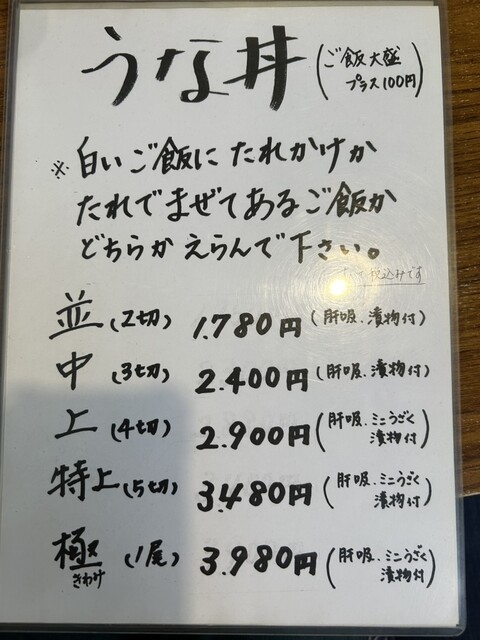 うな丼
(ご飯大盛
プラス100円)
※白いご飯にたれかけか
たれでまぜてあるご飯か
どちらかえらんで下さい。
税込みです
並(2切) 1.780円(肝吸.漬物付)
中(3切) 2.400円(肝吸.漬物付)
上(4切) 2.900円(肝吸.ミニうざく
漬物付)
特上(5切) 3.480円(肝吸.ミニうざく
漬物付)
極(1尾) 3.980円(肝吸.ミニうざく
きわみ
漬物付)